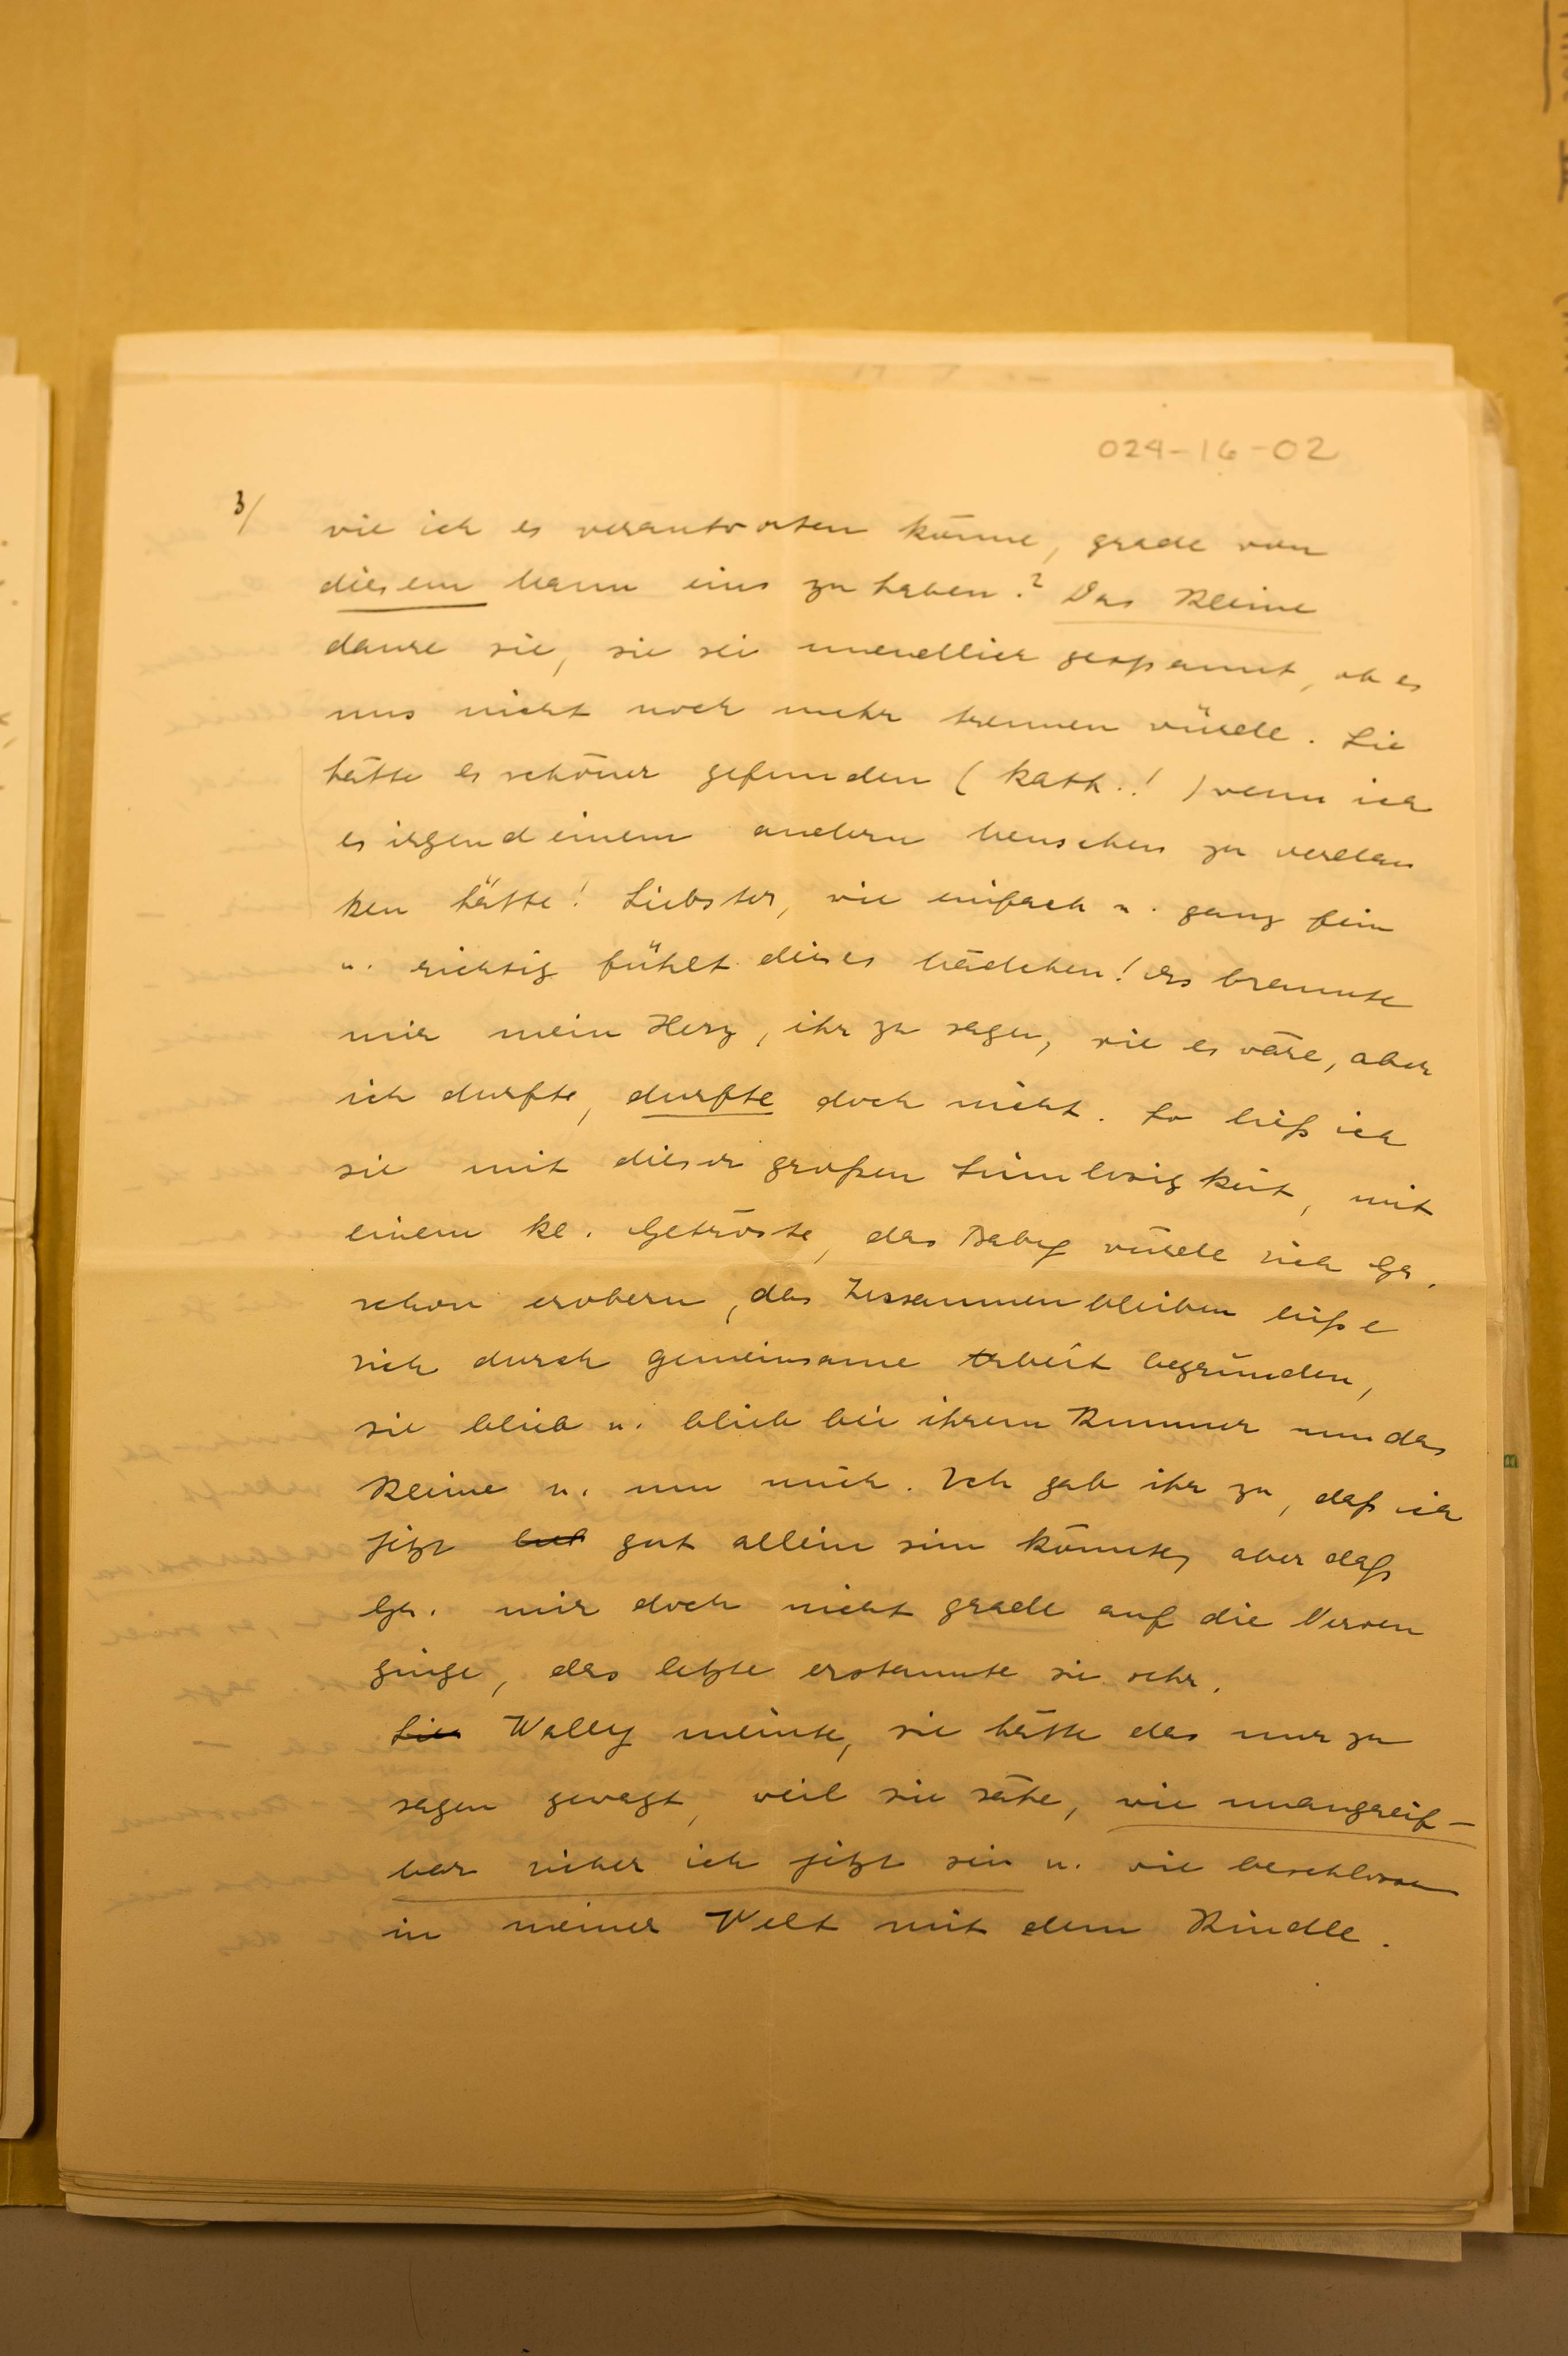 024-16-02
3/
wie ich es verantworten könne, grade von
diesem Mann eins zu haben? Das Kleine
daure sie, sie sei unendlich gespannt, ob es
uns nicht noch mehr trennen würde. Sie
hätte es schöner gefunden (kath.!) wenn ich
es irgendeinem andern Menschen zu verdan
ken hätte! Liebster, wie einfach u. ganz fein
u. richtig fühlt dieses Mädchen! Es brannte
mir mein Herz, ihr zu sagen, wie es wäre, aber
ich durfte, durfte doch nicht. So ließ ich
sie mit dieser großen Sinnlosigkeit, mit
einem kl. Getröste, das Baby würde sich Gr.
schon erobern, das Zusammenbleiben ließe
sich durch gemeinsame Arbeit begründen,
sie blieb u. blieb bei ihrem Kummer um das
Kleine u. um mich. Ich gab ihr zu, daß ich
jetzt gut allein sein könnte, aber daß
Gr. mir doch nicht grade auf die Nerven
ginge, das letzte erstaunte sie sehr.
Sie Wally meinte, sie hätte das nur zu
sagen gewagt, weil sie sähe, wie unangreif-
bar sicher ich jetzt sei u. wie beschlossen
in meiner Welt mit dem Kindle.